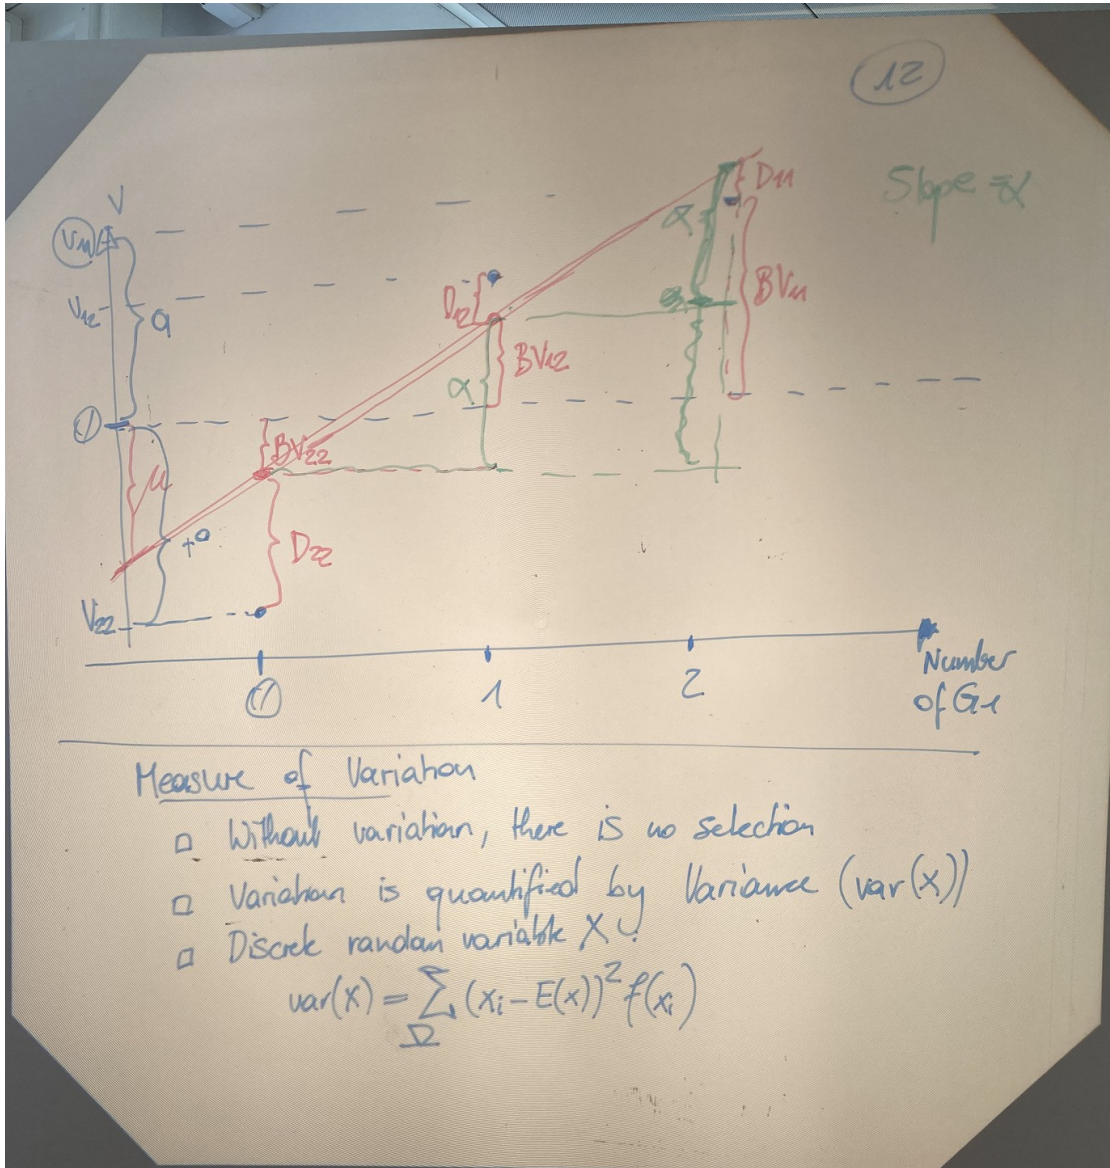 12
Slope = α
V
V11
D11
α
V12
a
D12
BV11
BV12
α
0
BV22
μ
D22
V22
0
1
2
Number
of G1
Measure of Variation
Without variation, there is no selection
Variation is quantified by Variance (var(x))
Discrete random variable X:
var(x) = Σ (xi - E(x))² f(xi)